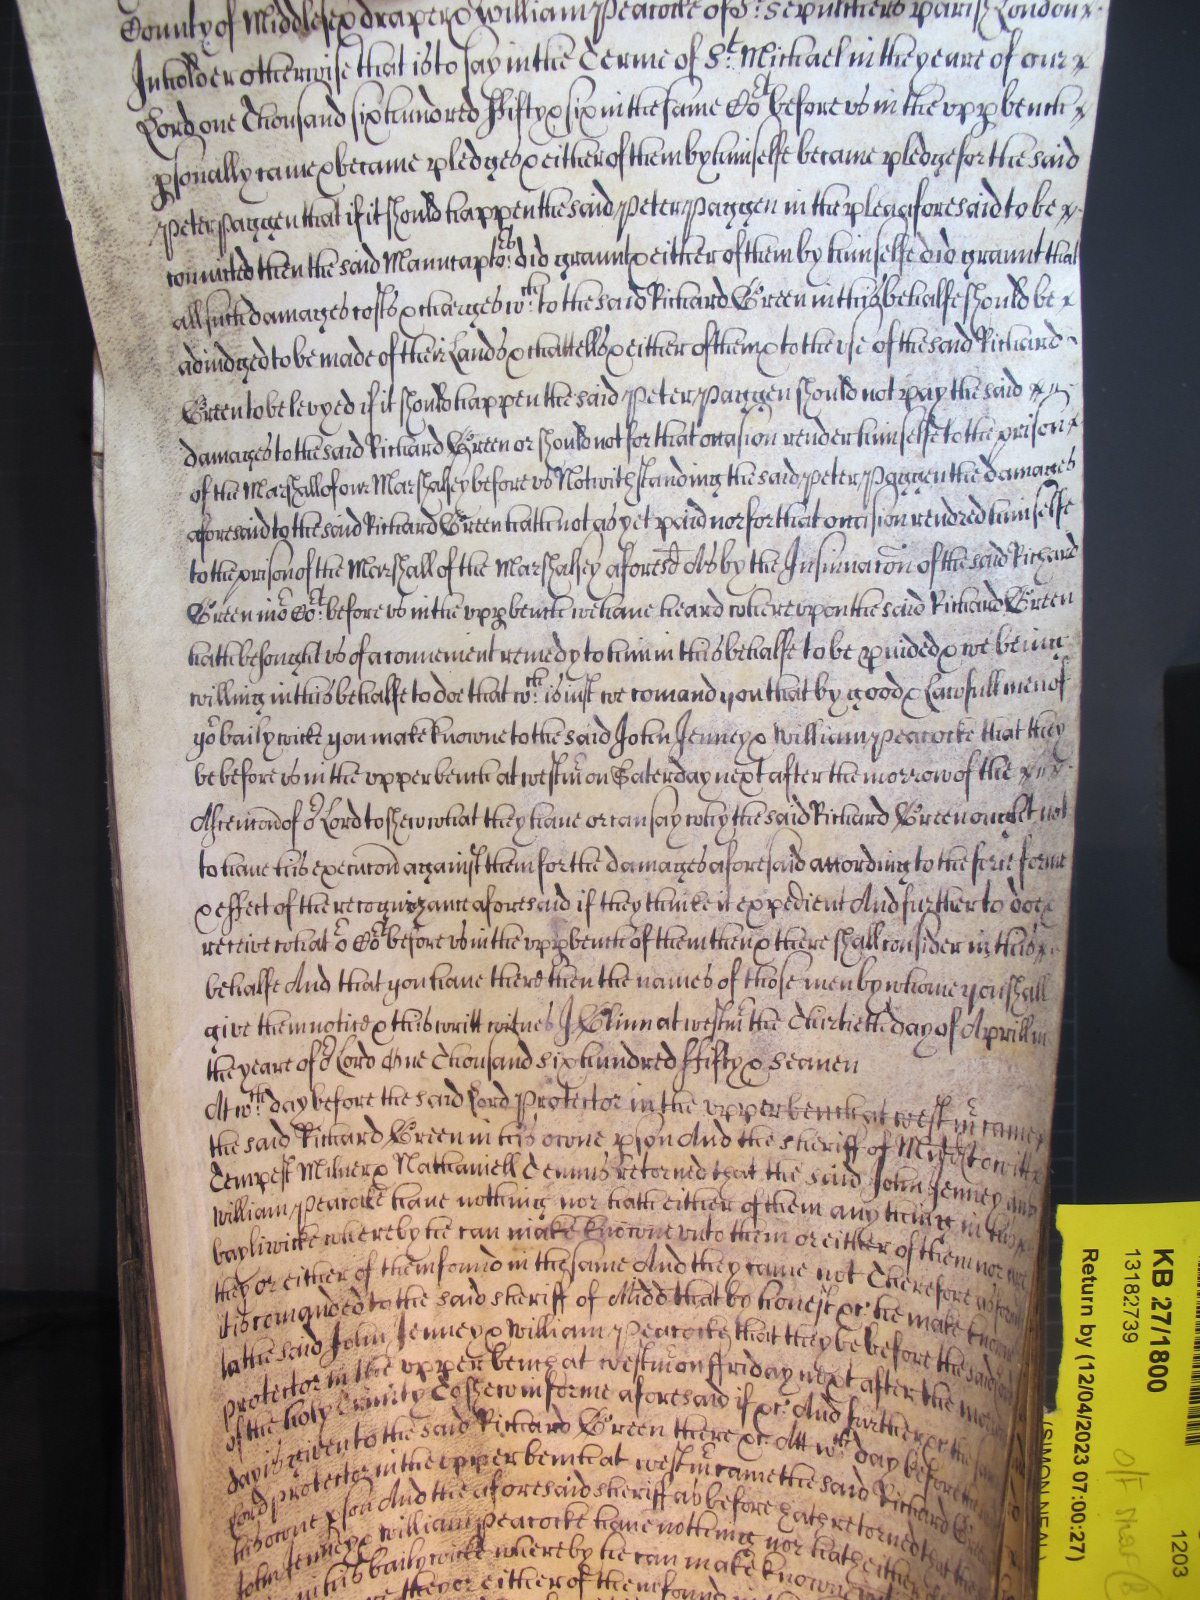 County of Middlesex draper & William Peacocke of St. Sepulchers parish London
Inholder otherwise that is to say in the Terme of St. Michael in the yeare of our
Lord one Thousand six hundred ffifty & six in the same Cot before us in the upp bench
psonally came & became pledges & either of them by himselfe became pledge for the said
Peter Paggen that if it should happen the said Peter Paggen in the plea aforesaid to be
convicted then the said Manucaptors did graunt & either of them by himselfe did graunt that
all such damages costs & charges wch. to the said Richard Green in this behalfe should be
adiudged to be made of their Lands & chattells & either of them & to the use of the said Richard
Green to be levyed if it should happen the said Peter Paggen should not pay the said
damages to the said Richard Green or should not for that occasion render himselfe to the prison
of the Marshall of our Marshalsey before us Notwithstanding the said Peter Paggen the damages
aforesaid to the said Richard Green hath not as yet paid nor for that occasion rendred himselfe
to the prison of the Marshall of the Marshalsey aforesd As by the Insinuacon of the said Richard
Green in or Cot. before us in the upp bench we have heard whereupon the said Richard Green
hath besought us of a convenient remedy to him in this behalfe to be pvided & we being
willing in this behalfe to doe that wch. is iust we comand you that by good & Lawfull men of
yor bailywicke you make knowne to the said John Jenney & William Peacocke that they
be before us in the upper bench at westmr on Saterday next after the morrow of the
Ascencon of or Lord to shew what they have or can say why the said Richard Green ought not
to have his execucon against them for the damages aforesaid according to the force forme
& effect of the recognizance aforesaid if they thinke it expedient And further to doe &
receive what or Cot before us in the upp bench of them then & there shall consider in this
behalfe And that you have there then the names of those men by whome you shall
give them notice & this writt witnes J Glinn at westmr the Thirtieth day of Aprill in
the yeare of or Lord One Thousand six hundred ffifty & seaven
At wch. day before the said Lord Protector in the upper bench at westmr came
the said Richard Green in his owne pson And the sheriff of Middx to witt
Tempest Milner & Nathaniell Temms retorned that the said John Jenney and
William Peacocke have nothing nor hath either of them any thing in his
bayliwicke whereby he can make knowne unto them or either of them nor are
they or either of them found in the same And they came not Therefore as
it is comanded to the said sheriff of Midd that by honest &c. he make knowne
to the said John Jenney & William Peacocke that they be before the said
protector in the upper bench at westmr on ffriday next after the morrow
of the holy Trinity To shew in forme aforesaid if &c. And further &c. the same
day is given to the said Richard Green there &c. Att wch day before the said
Lord protector in the upper bench at westmr came the said Richard Green
his owne pson And the aforesaid sheriff as before hath retorned that the
John Jenney & William Peacocke have nothing nor hath either
in his bailywicke whereby he can make knowne
they or either of them found in
KB 27/1800
13182739
Return by (12/04/2023 07:00:27)
(SIMON NEAL)
1203